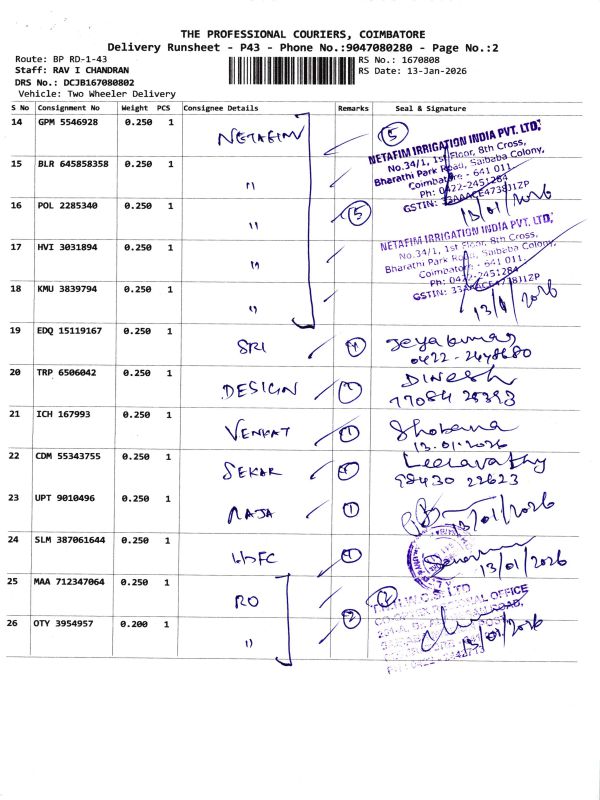 THE PROFESSIONAL COURIERS, COIMBATORE
Delivery Runsheet - P43 - Phone No.:9047080280 - Page No.:2
Route: BP RD-1-43
RS No.: 1670808
Staff: RAV I CHANDRAN
RS Date: 13-Jan-2026
DRS No.: DCJB167080802
Vehicle: Two Wheeler Delivery
S No Consignment No Weight PCS Consignee Details Remarks Seal & Signature
14 GPM 5546928 0.250 1 NETAFIM 5
NETAFIM IRRIGATION INDIA PVT. LTD.
No.34/1, 1st Floor, 8th Cross,
Bharathi Park Road, Saibaba Colony,
Coimbatore - 641 011.
Ph: 0422-2451284
GSTIN: 33AAACE4738J1ZP
13/01/2026
15 BLR 645858358 0.250 1 "
16 POL 2285340 0.250 1 " 5
17 HVI 3031894 0.250 1 "
NETAFIM IRRIGATION INDIA PVT. LTD.
No.34/1, 1st Floor, 8th Cross,
Bharathi Park Road, Saibaba Colony,
Coimbatore - 641 011.
Ph: 0422-2451284
GSTIN: 33AAACE4738J1ZP
13/1/2026
18 KMU 3839794 0.250 1 "
19 EDQ 15119167 0.250 1 SRI 1 Jeyakumar
0422-2448680
20 TRP 6506042 0.250 1 DESIGN 1 DINESH
77084 25393
21 ICH 167993 0.250 1 VENKAT 1 Shobana
13.01.2026
22 CDM 55343755 0.250 1 SEKAR 1 Leelavathy
98430 22623
23 UPT 9010496 0.250 1 RAJA 1 13/01/2026
24 SLM 387061644 0.250 1 HDFC 1 13/01/2026
25 MAA 712347064 0.250 1 RO 2
LTD
OFFICE
26 OTY 3954957 0.200 1 " 2 13/01/2026